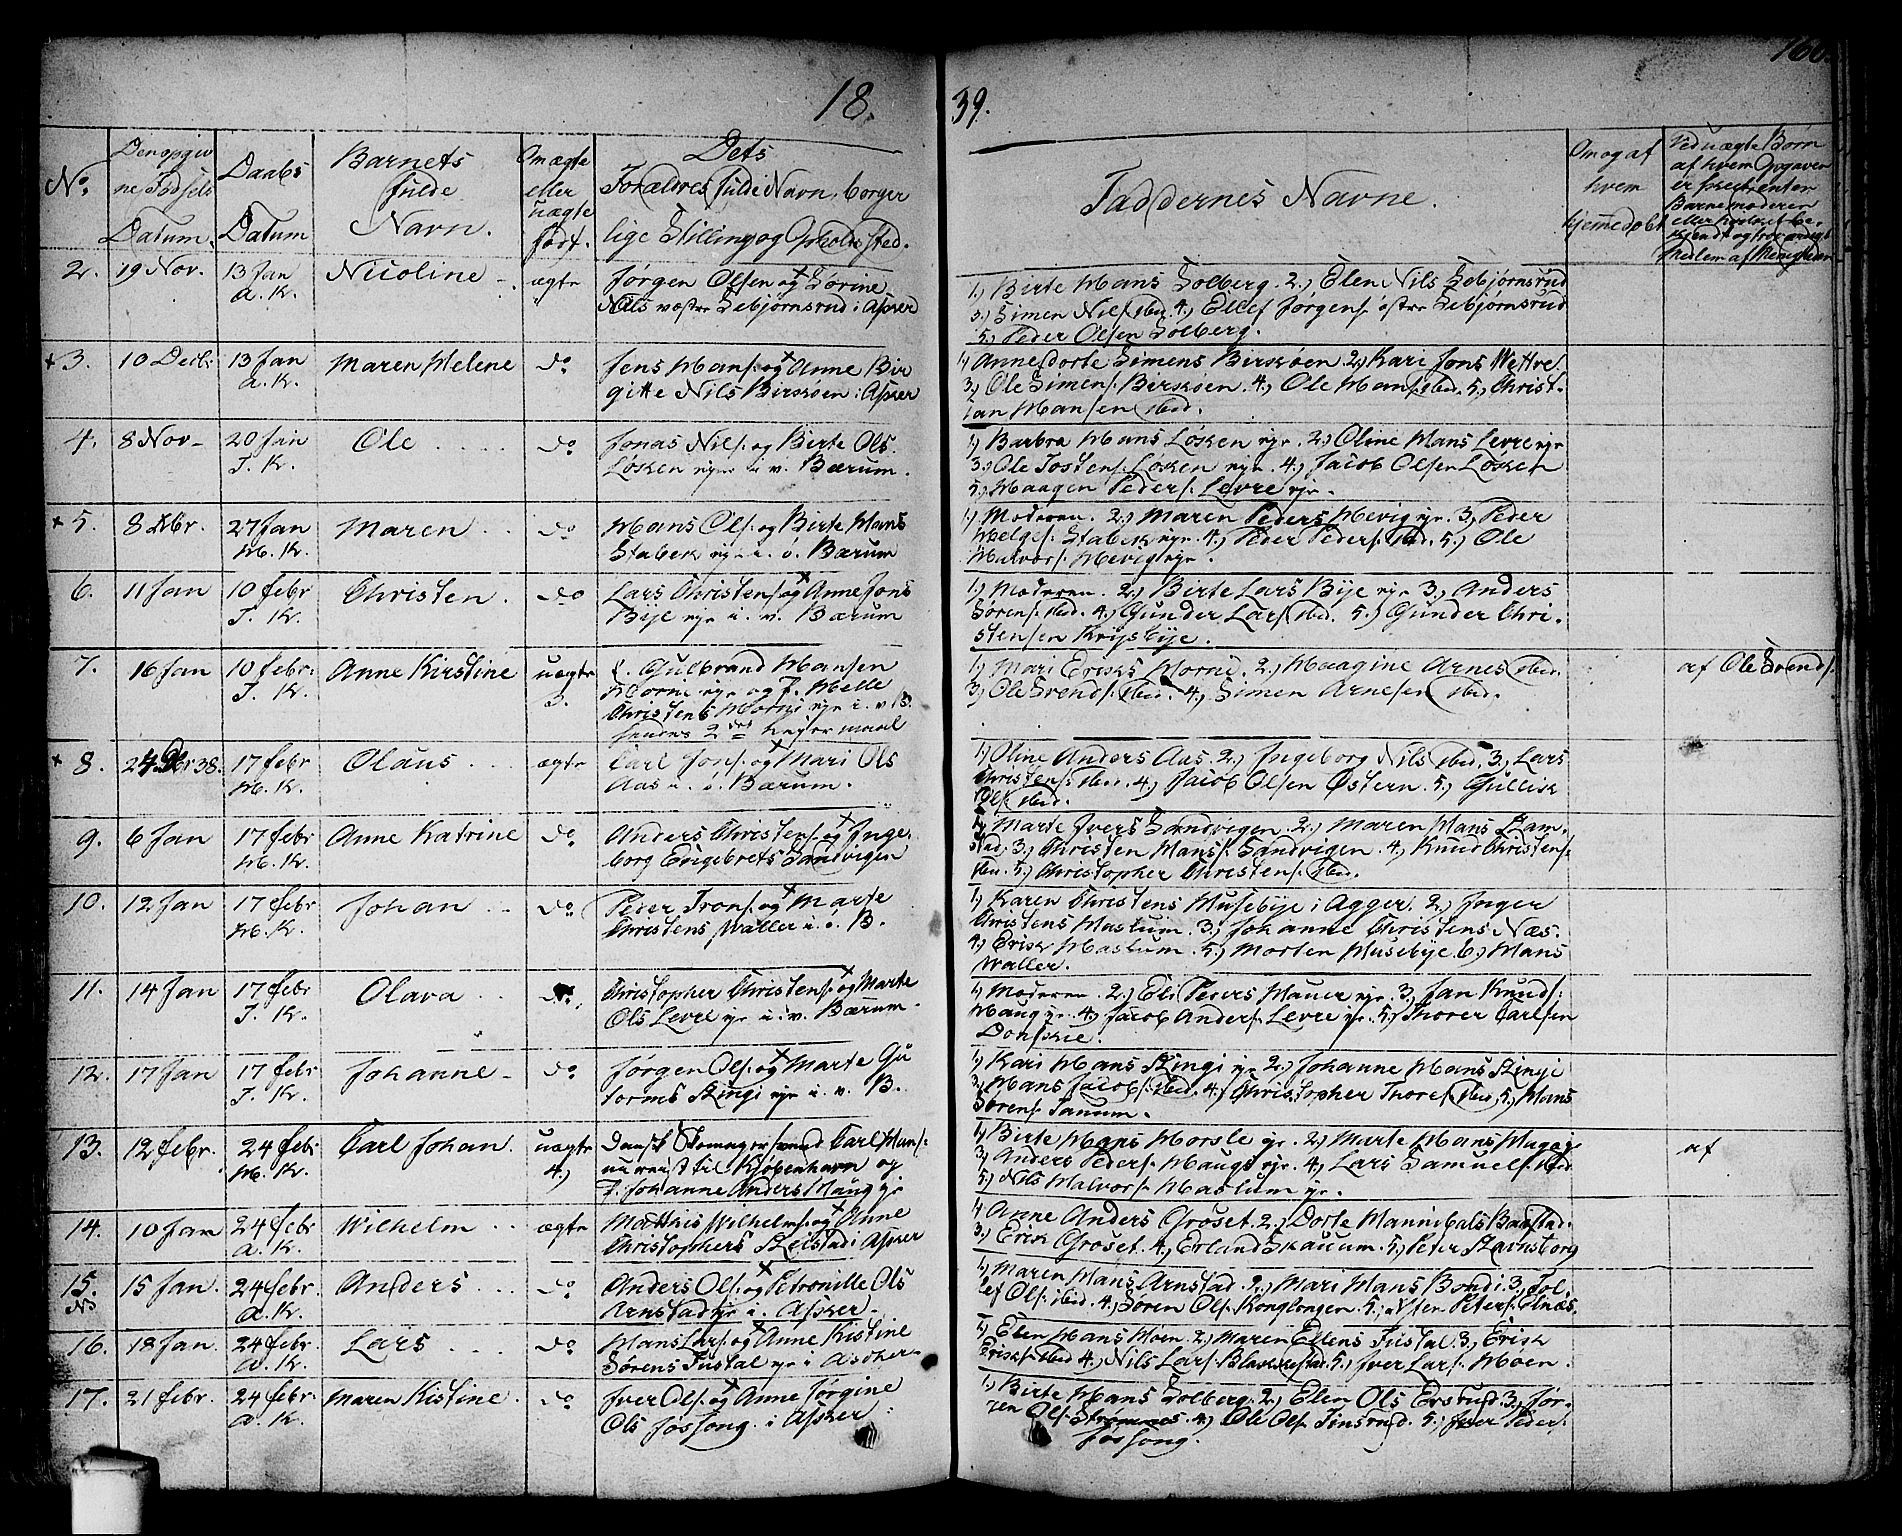 18. 39.
160.
No.
Den opgiv
ne Fødsels
Datum.
Daabs
Datum
Barnets
fulde
Navn.
Om ægte
eller
uægte
født.
Dets
Forældres fulde Navn, borger
lige Stilling og Opholdssted.
Faddernes Navne.
Om og af
hvem
hjemmedøbt
Ved uægte Børn
af hvem Opgaven
er skeet, enten
Barnemoderen
eller hvilket be-
kjendt og troværdigt
Medlem af Menigheden
2. 19 Nov. 13 Jan Nicoline ægte Jørgen Olsen og Sørine
a. K. Nils vestre Sebjørnsrud i Asker
1, Birte Hans Solberg. 2, Elen Nils Sebjørnsrud
3, Simen Nils. ibid. 4, Ellef Jørgens. østre Sebjørnsrud
5, Peder Olsen Solberg.
+ 3. 10 Decbr 13 Jan Maren Helene do Jens Hans. og Anne Bir
a. K. gitte Nils Birkøen i Asker
1, Anne Dorte Simens Birkøen 2, Kari Jons Hettve
3, Ole Simens. Birkøen. 4, Ole Hans. ibid. 5, Christ-
ian Hansen ibid.
4. 8 Nov 20 Jan Ole do Jonas Nils. og Birte Ols.
T. K. Løken eje i v. Bærum.
1, Barbra Hans Løken eje. 2, Oline Hans Levre eje
3, Ole Jostens. Løken eje. 4, Jacob Olsen Løken
5, Haagen Peders. Levre eje.
+ 5. 8 Dbr. 27 Jan Maren do Hans Ols. og Birte Hans
H. K. Stabek eje i. ø. Bærum
1, Moderen. 2, Maren Peders Høvig eje. 3, Peder
Helges. Stabek eje. 4, Peder Peders. ibid. 5, Ole
Halvors. Høvig eje.
6. 11 Jan 10 febr Christen do Lars Christens. og Anne Jons
T. K. Bye eje i. v. Bærum
1, Moderen. 2, Birte Lars Bye eje 3, Anders
Sørens. ibid. 4, Gunder Lars. ibid. 5, Gunder Chri-
stensen Krysbye.
7. 16 Jan 10 febr. Anne Kirstine uægte Gulbrand Hansen
T. K. 3. Horni eje og P. Helle
Christens Horni eje i. v. B.
1, Mari Eriks Horni. 2, Haagine Arnes ibid.
3, Ole Svends. ibid. 4, Simen Arnesen ibid.
af Ole Svends.
+ 8. 24 Dbr 38. 17 febr Olaus ægte Carl Jons. og Mari Ols
H. K. Aas i. ø. Bærum.
1, Oline Anders Aas. 2, Ingeborg Nils ibid. 3, Lars
Christens. ibid. 4, Jacob Olsen Østern. 5, Gullik
Ols. ibid.
9. 6 Jan 17 febr Anne Katrine do Anders Christens. og Inge-
H. K. borg Engebrets Sandvigen
1, Marte Ivers Sandvigen. 2, Maren Hans Ram-
stad. 3, Christen Hans. Sandvigen. 4, Knud Christens.
5, Christopher Christens. ibid.
10. 12 Jan 17 febr Johan do Peter Trons. og Marte
H. K. Christens Waller i. ø. B.
1, Karen Christens Husebye i Agger. 2, Inger
Christens Haslum. 3, Johanne Christens Næs.
4, Erik Haslum. 5, Morten Husebye. 6, Hans
Waller.
11. 14 Jan 17 febr Olava do. Christopher Christens. og Marte
T. K. Ols Levre eje i. v. Bærum
1, Moderen. 2, Eli Peders Hauer eje. 3, Jan Knuds.
Haug eje. 4, Jacob Anders. Levre eje. 5, Thorer Carlsen
Donskie.
12. 17 Jan 17 febr Johanne do Jørgen Ols. og Marte Gu
T. K. torms Ringi eje i. v. B.
1, Kari Hans Ringi eje 2, Johanne Hans Ringi
3, Hans Jacobs. ibid. 4, Christopher Thores. ibid. 5, Hans
Sørens. Tanum.
13. 12 febr. 24 febr Carl Johan. uægte Dansk Skomagersvend Carl Hans.
H. K. 4, nu reist til Kjøbenhavn og
P. Johanne Anders Haug eje
1, Birte Hans Horsle eje. 2, Marte Hans Haug eje
3, Anders Peders. Haugs eje. 4, Lars Samuels. ibid
5, Nils Halvors. Haslum eje.
af
14. 10 Jan 24 febr Wilhelm ægte Matthis Wilhelms. og Anne
a. K. Christophers Reistad i Asker
1, Anne Anders Groset. 2, Dorte Hannibals Baastad.
3, Erik Groset. 4, Erland Skauum. 5, Peter Ravnsborg
15. 15 Jan. 24 febr. Anders do Anders Ols. og Petronille Ols
No a. K. Arnstad eje i. Asker.
1, Maren Hans Arnstad. 2, Mari Hans Bondi. 3, Tol-
lef Ols. ibid. 4, Søren Ols. Konglongen. 5, Peters. Elnæs.
16. 18 Jan 24 febr. Lars do Hans Lars. og Anne Kistine
a. K. Sørens Fustal eje i Asker
1, Elen Hans Moen. 2, Maren Ellens Fustal. 3, Erik
Eriks. ibid 4, Nils Lars. Blakkestad. 5, Iver Lars. Moen.
17. 21 febr. 24 febr. Maren Kistine do Iver Ols. og Anne Jørgine
a. K. Ols Fossong. i Asker.
1, Birte Hans Solberg. 2, Elen Ols Ersrud. 3, Jør-
gen Ols. Strømnes. 4, Ole Ols. Finsrud. 5, Iver Peders.
Fossong.